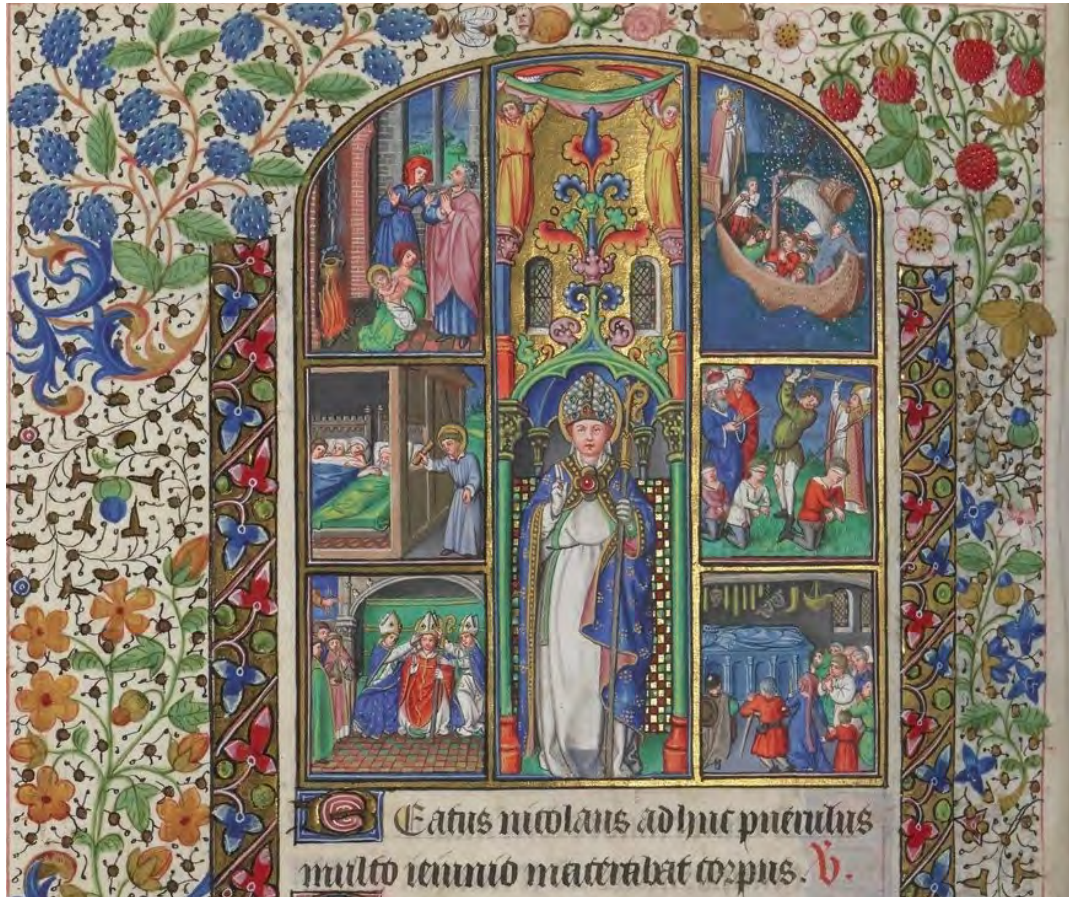 BEatus nicolaus adhuc puerulus
multo ieiunio macerabat corpus. V.